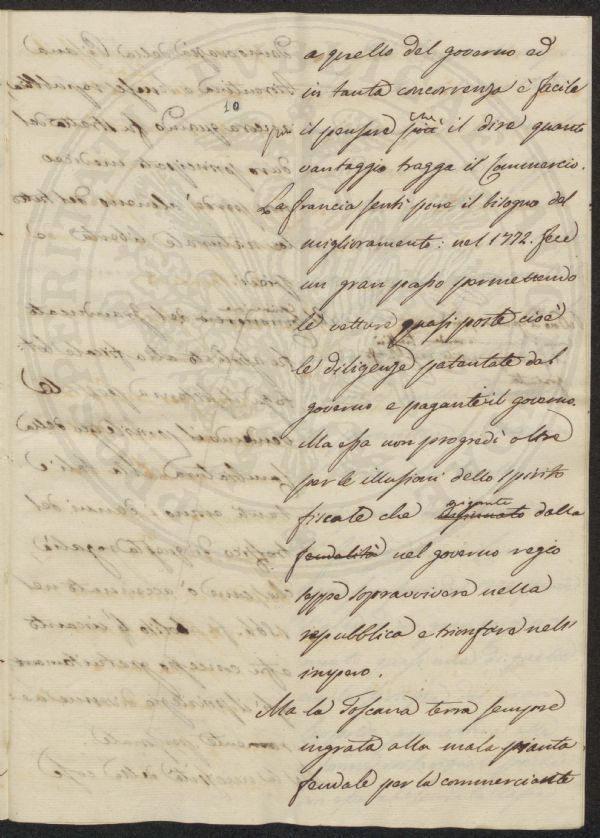 a quello del governo ed
in tanta concorrenza è facile
10
più il pensare che il dire quanto
vantaggio tragga il Commercio.
La francia sentì pure il bisogno del
miglioramento: nel 1772. fece
un gran passo permettendo
le vetture quasi poste cioè
le diligenze patentate dal
governo e paganti il governo.
Ma essa non progredì oltre
per le illusioni dello spirito
fiscale che gigante dalla
feudalità nel governo regio
seppe sopravvivere nella
repubblica e trionfare nell'
impero.
Ma la Toscana terra sempre
ingrata alla mala pianta
feudale per la commerciante